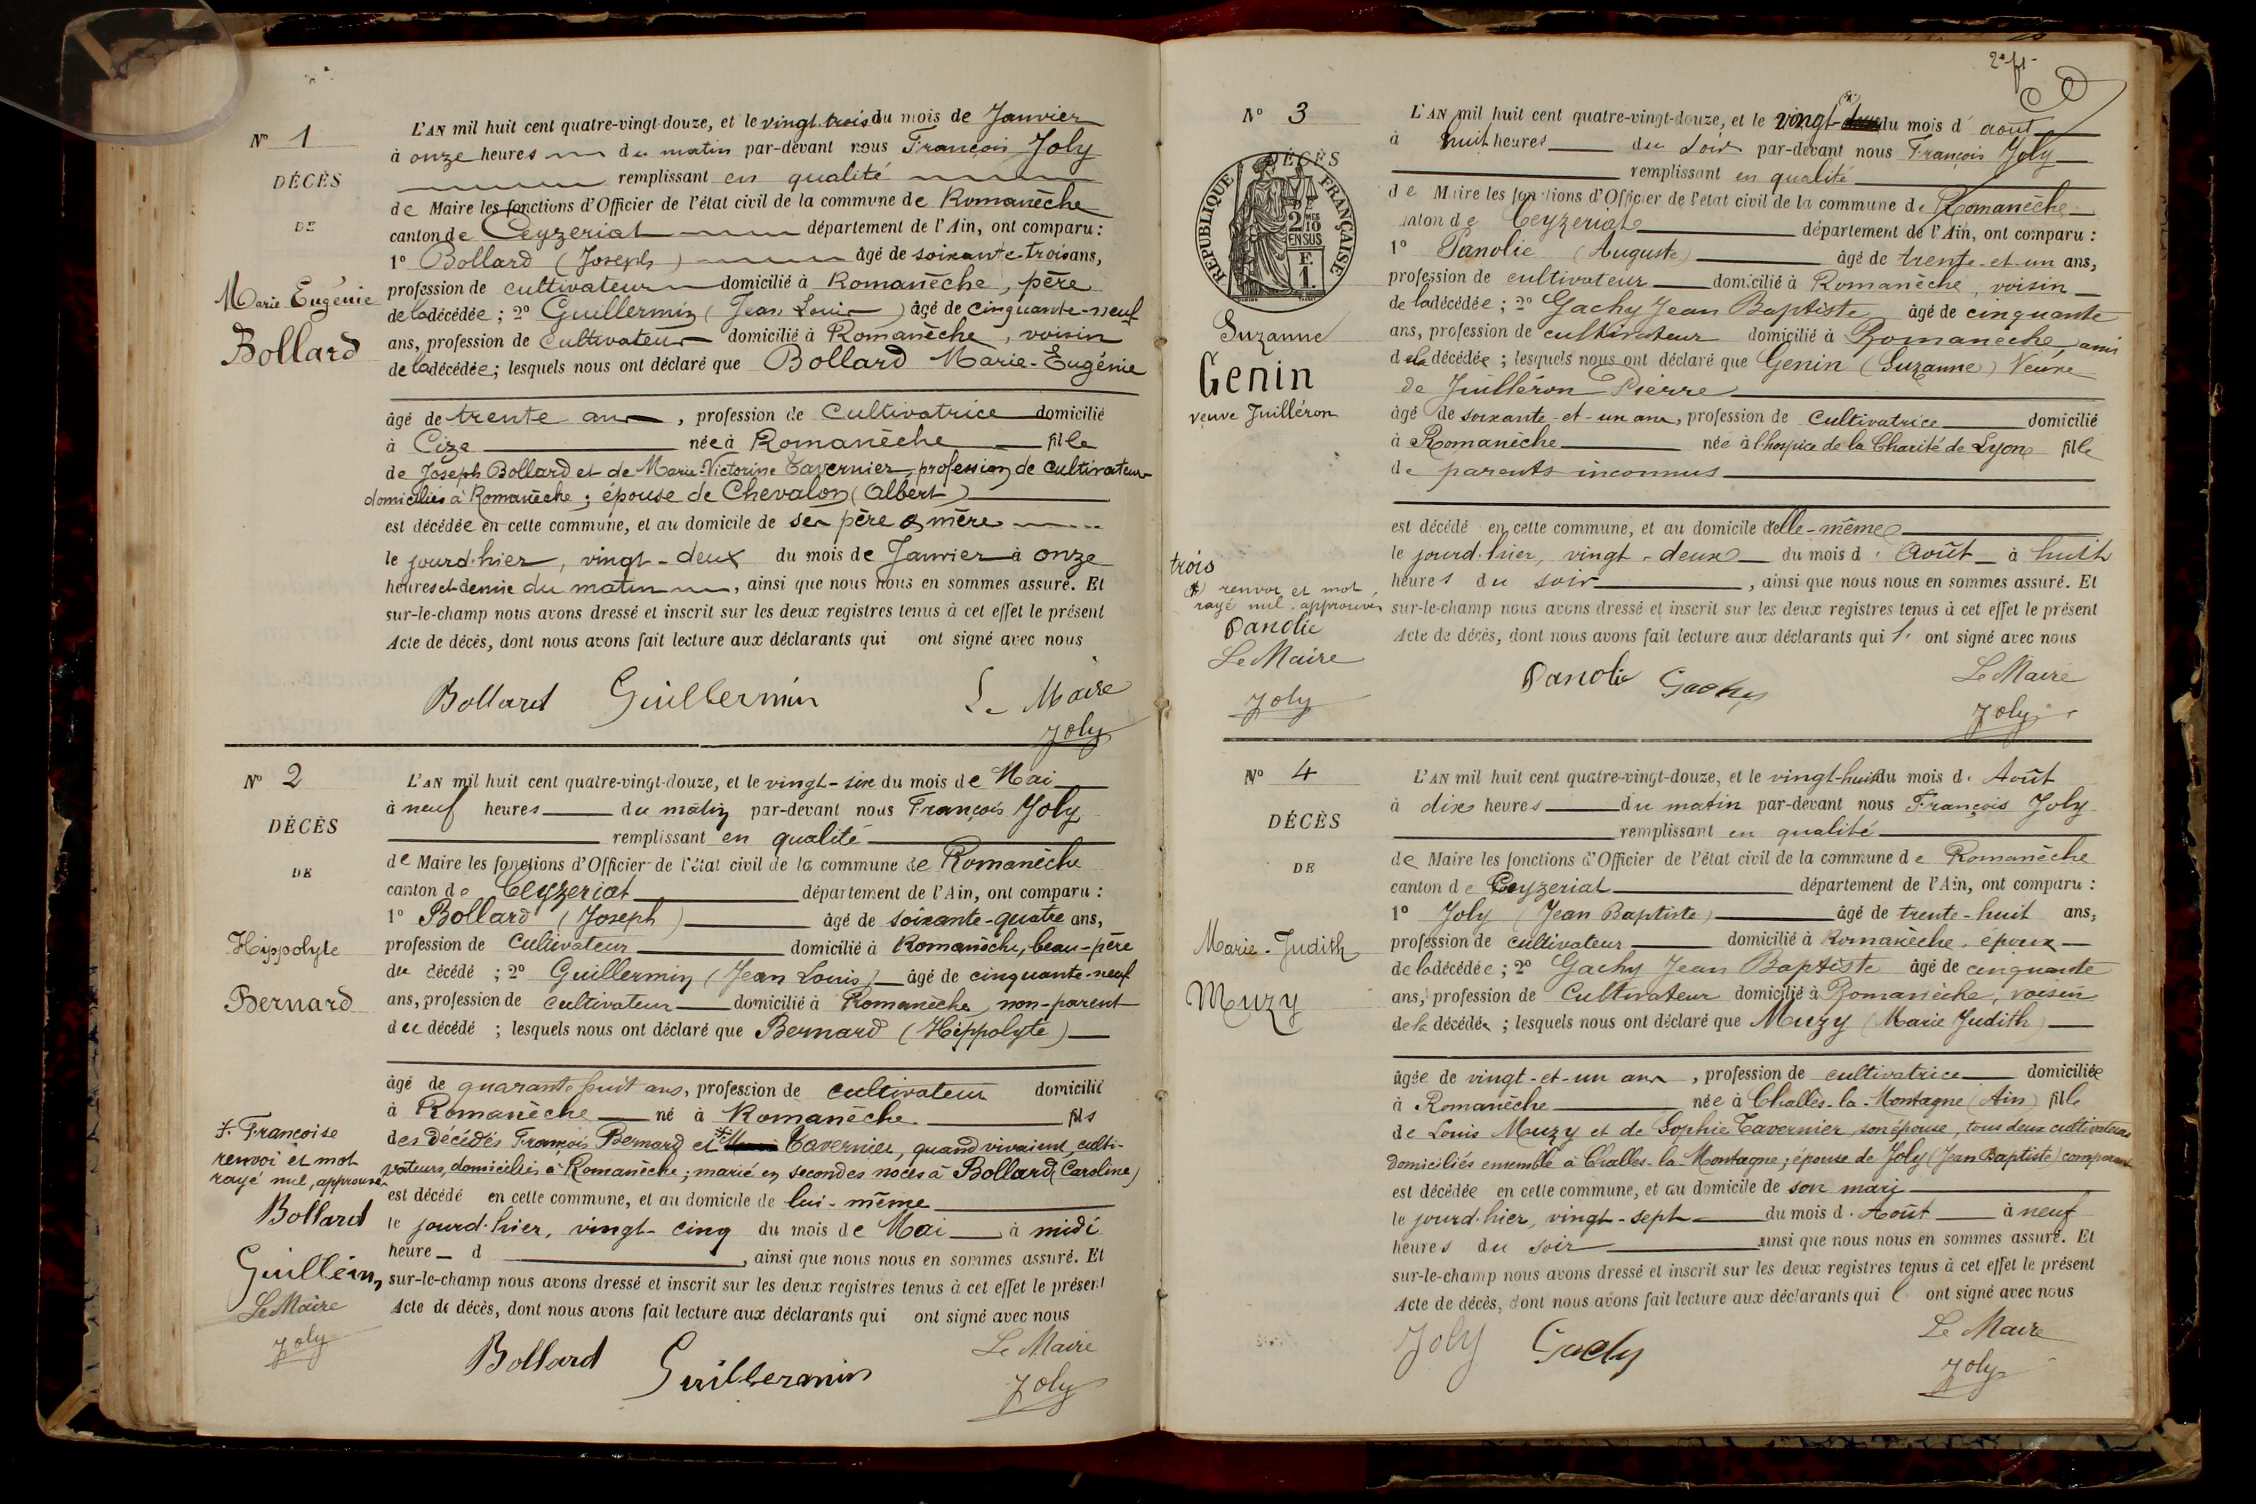 N° 1
DÉCÈS
DE
Marie Eugénie
Bollard
L'AN mil huit cent quatre-vingt-douze, et le vingt-trois du mois de Janvier
à onze heures du matin par-devant nous François Joly
remplissant en qualité
de Maire les fonctions d'Officier de l'état civil de la commune de Romanèche
canton de Ceyzeriat département de l'Ain, ont comparu :
1° Bollard (Joseph) âgé de soixante-trois ans,
profession de cultivateur domicilié à Romanèche, père
de la décédée ; 2° Guillermin (Jean Louis) âgé de cinquante-neuf
ans, profession de cultivateur domicilié à Romanèche, voisin
de la décédée ; lesquels nous ont déclaré que Bollard Marie-Eugénie
âgé de trente ans, profession de Cultivatrice domicilié
à Cize née à Romanèche fille
de Joseph Bollard et de Marie-Victorine Tavernier, profession de cultivateurs
domiciliés à Romanèche ; épouse de Chevalon (Albert)
est décédée en cette commune, et au domicile de ses père & mère
le jourd'hier, vingt-deux du mois de Janvier à onze
heures et demie du matin, ainsi que nous nous en sommes assuré. Et
sur-le-champ nous avons dressé et inscrit sur les deux registres tenus à cet effet le présent
Acte de décès, dont nous avons fait lecture aux déclarants qui ont signé avec nous
Bollard Guillermin Le Maire
Joly
N° 2
DÉCÈS
DE
Hippolyte
Bernard
L'AN mil huit cent quatre-vingt-douze, et le vingt-six du mois de Mai
à neuf heures du matin par-devant nous François Joly
remplissant en qualité
de Maire les fonctions d'Officier de l'état civil de la commune de Romanèche
canton de Ceyzeriat département de l'Ain, ont comparu :
1° Bollard (Joseph) âgé de soixante-quatre ans,
profession de cultivateur domicilié à Romanèche, beau-père
du décédé ; 2° Guillermin (Jean Louis) âgé de cinquante-neuf
ans, profession de cultivateur domicilié à Romanèche, non-parent
du décédé ; lesquels nous ont déclaré que Bernard (Hippolyte)
âgé de quarante huit ans, profession de cultivateur domicilié
à Romanèche né à Romanèche fils
des décédés François Bernard et Tavernier, quand vivaient, culti-
vateurs, domiciliés à Romanèche ; marié en secondes noces à Bollard (Caroline)
est décédé en cette commune, et au domicile de lui-même
le jourd'hier, vingt-cinq du mois de Mai à midi
heure d , ainsi que nous nous en sommes assuré. Et
sur-le-champ nous avons dressé et inscrit sur les deux registres tenus à cet effet le présent
Acte de décès, dont nous avons fait lecture aux déclarants qui ont signé avec nous
Françoise
renvoi et mot
rayé nul, approuvés
Bollard
Guillermin
Le Maire
Joly
Bollard Guillermin Le Maire
Joly
N° 3
DÉCÈS
DE
RÉPUBLIQUE FRANÇAISE
2 MES 10 EN SUS
F. 1.
Suzanne
Genin
veuve Juilléron
L'AN mil huit cent quatre-vingt-douze, et le vingt- du mois d' août
à huit heures du soir par-devant nous François Joly
remplissant en qualité
de Maire les fonctions d'Officier de l'état civil de la commune de Romanèche
canton de Ceyzeriat département de l'Ain, ont comparu :
1° Panolie (Auguste) âgé de trente-et-un ans,
profession de cultivateur domicilié à Romanèche, voisin
de la décédée ; 2° Gachy Jean Baptiste âgé de cinquante
ans, profession de cultivateur domicilié à Romanèche, ami
de la décédée ; lesquels nous ont déclaré que Genin (Suzanne) Veuve
de Juilléron Pierre
âgé de soixante-et-un ans, profession de cultivatrice domicilié
à Romanèche née à l'hospice de la Charité de Lyon fille
de parents inconnus
est décédé en cette commune, et au domicile d'elle-même
le jourd'hier, vingt-deux du mois d' Août à huit
heures du soir, ainsi que nous nous en sommes assuré. Et
sur-le-champ nous avons dressé et inscrit sur les deux registres tenus à cet effet le présent
Acte de décès, dont nous avons fait lecture aux déclarants qui l' ont signé avec nous
trois
renvoi et mot
rayé nul, approuvés
Panolie
Le Maire
Joly
Panolie Gachy Le Maire
Joly
N° 4
DÉCÈS
DE
Marie-Judith
Muzy
L'AN mil huit cent quatre-vingt-douze, et le vingt-huit du mois d' Août
à dix heures du matin par-devant nous François Joly
remplissant en qualité
de Maire les fonctions d'Officier de l'état civil de la commune de Romanèche
canton de Ceyzeriat département de l'Ain, ont comparu :
1° Joly (Jean Baptiste) âgé de trente-huit ans,
profession de cultivateur domicilié à Romanèche, époux
de la décédée ; 2° Gachy Jean Baptiste âgé de cinquante
ans, profession de Cultivateur domicilié à Romanèche, voisin
de la décédée ; lesquels nous ont déclaré que Muzy (Marie Judith)
âgée de vingt-et-un ans, profession de cultivatrice domiciliée
à Romanèche née à Challes-la-Montagne (Ain) fille
de Louis Muzy et de Sophie Tavernier, son épouse, tous deux cultivateurs
domiciliés ensemble à Challes-la-Montagne ; épouse de Joly (Jean Baptiste) comparant
est décédée en cette commune, et au domicile de son mari
le jourd'hier, vingt-sept du mois d' Août à neuf
heures du soir ainsi que nous nous en sommes assuré. Et
sur-le-champ nous avons dressé et inscrit sur les deux registres tenus à cet effet le présent
Acte de décès, dont nous avons fait lecture aux déclarants qui l' ont signé avec nous
Joly Gachy Le Maire
Joly